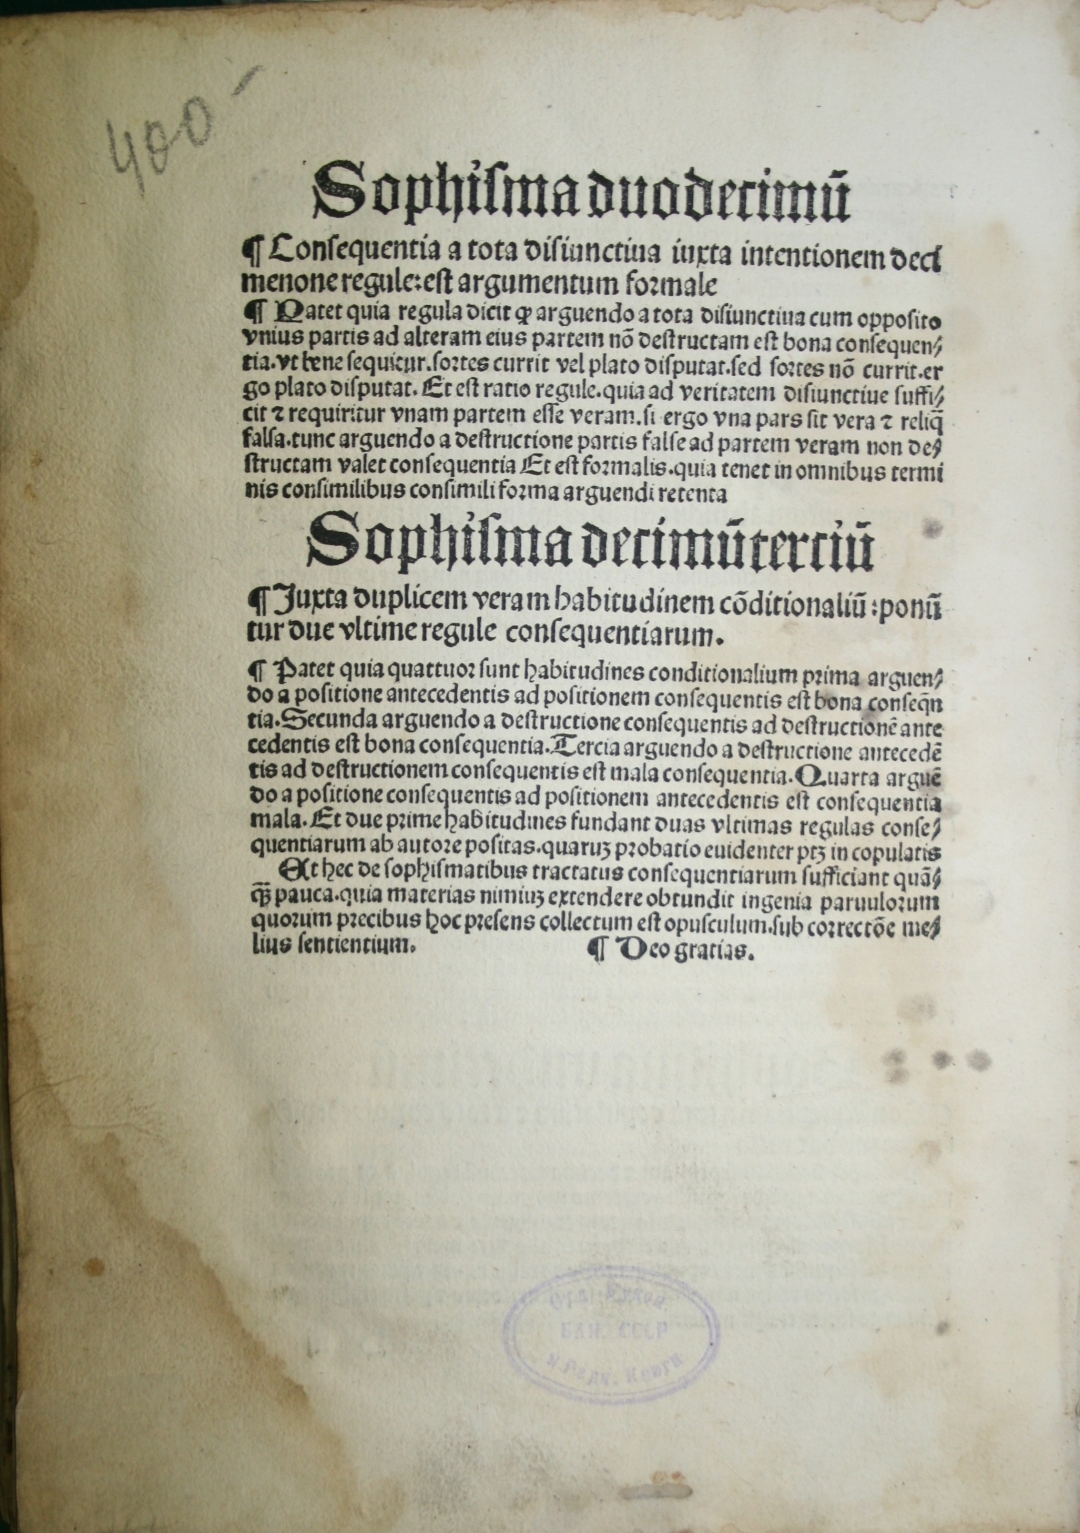 400
Sophisma duodecimū
¶ Consequentia a tota disiunctiua iuxta intentionem deci
menone regule:est argumentum formale
¶ Patet quia regula dicit ꝙ arguendo a tota disiunctiua cum opposito
vnius partis ad alteram eius partem nō destructam est bona consequen⸗
tia.vt bene sequitur.sortes currit vel plato disputat.sed sortes nō currit.er
go plato disputat. Et est ratio regule.quia ad veritatem disiunctiue suffi⸗
cit ⁊ requiritur vnam partem esse veram.si ergo vna pars sit vera ⁊ reliq̄
falsa.tunc arguendo a destructione partis false ad partem veram non de⸗
structam valet consequentia Et est formalis.quia tenet in omnibus termi
nis consimilibus consimili forma arguendi retenta
Sophisma decimūterciū
¶ Juxta duplicem veram habitudinem cōditionaliū:ponū
tur due vltime regule consequentiarum.
¶ Patet quia quattuor sunt habitudines conditionalium prima arguen⸗
do a positione antecedentis ad positionem consequentis est bona conseq̄n
tia.Secunda arguendo a destructione consequentis ad destructionē ante
cedentis est bona consequentia.Tercia arguendo a destructione antecedē
tis ad destructionem consequentis est mala consequentia.Quarta arguē
do a positione consequentis ad positionem antecedentis est consequentia
mala.Et due prime habitudines fundant duas vltimas regulas conse⸗
quentiarum ab autore positas.quarūꝫ probatio euidenter ptꝫ in copulatis
Et hec de sophismatibus tractatus consequentiarum sufficiant quā⸗
q̄ꝫ pauca.quia materias nimiuꝫ extendere obtundit ingenia paruulorum
quorum precibus hoc presens collectum est opusculum.sub correctōe me⸗
lius sentientium. ¶ Deo gratias.
БАН. СССР
и Редк. Книги